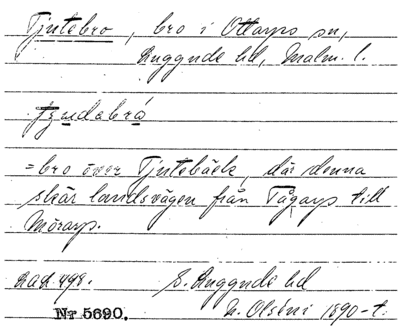 Tjutebro, bro i Ottarps sn,
Ruggnde hd, Malm. l.
tjudabrå
= bro över Tjutebäck, där denna
skär landsvägen från Tågarp till
Mörarp.
Rad. 498. S. Ruggnde hd
N. Olséni 1890-t.
Nr 5690.